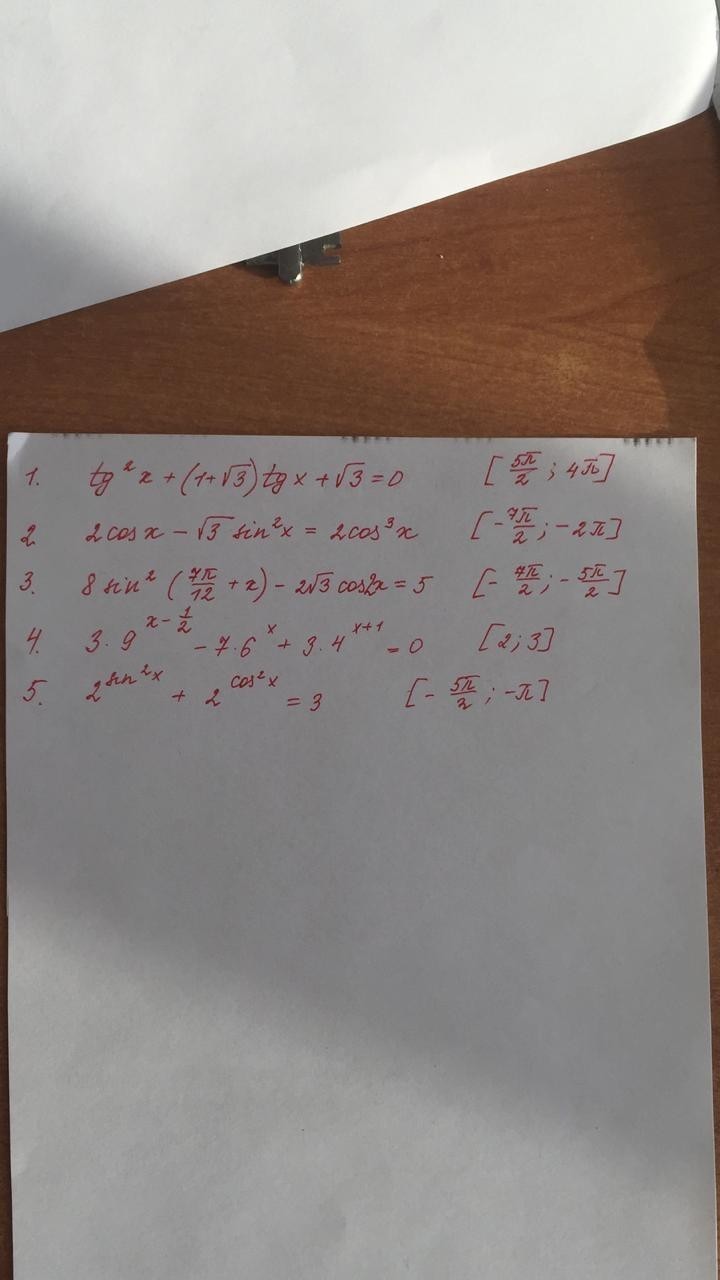 1. tg²x + (1+√3) tg x + √3 = 0 [5π/2 ; 4π]
2 2cos x − √3 sin²x = 2cos³x [-7π/2 ; −2π]
3. 8 sin² (7π/12 + x) − 2√3 cos2x = 5 [- 7π/2 ; - 5π/2]
4. 3·9^(x−1/2) − 7·6^x + 3·4^(x+1) = 0 [2; 3]
5. 2^(sin²x) + 2^(cos²x) = 3 [- 5π/2 ; -π]